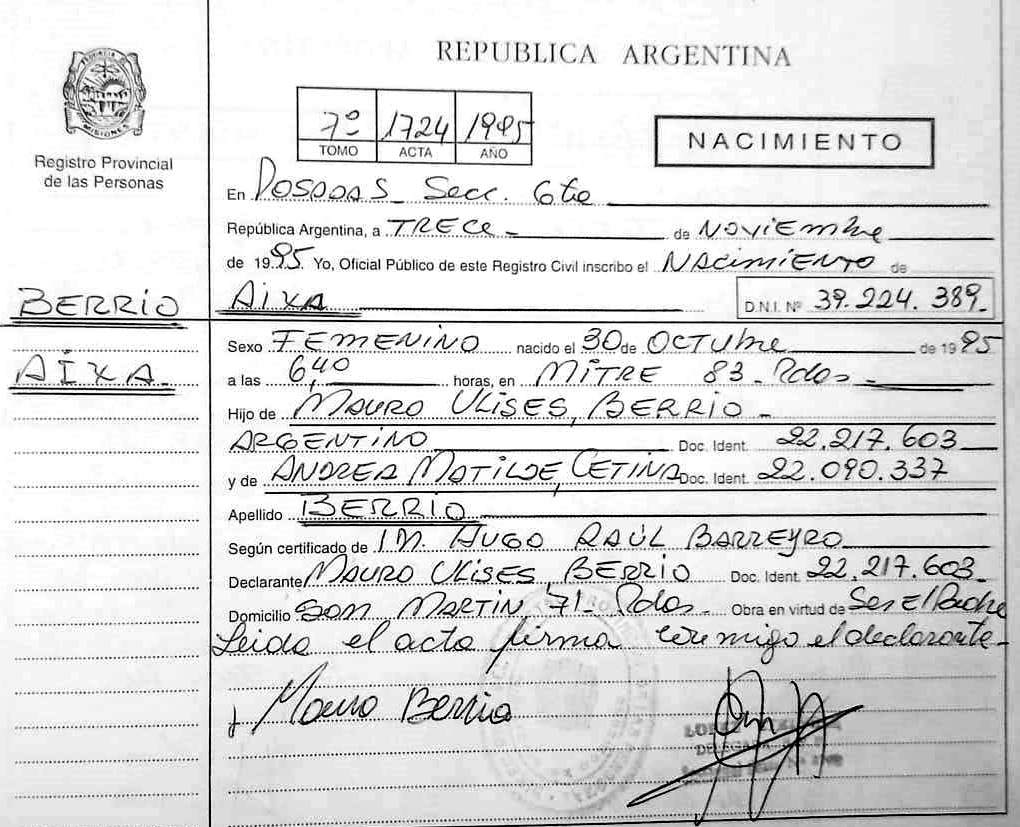 REPUBLICA ARGENTINA
PROVINCIA DE MISIONES
Registro Provincial
de las Personas
7º 1724 1995
TOMO ACTA AÑO
NACIMIENTO
En Posadas Secc. 6ta
República Argentina, a TRECE de NOViEmbre
de 1995 Yo, Oficial Público de este Registro Civil inscribo el NACimiENTO de
BERRIO AiXA D.N.I. Nº 39.224.389
Sexo FEMENiNO nacido el 30 de OCTUbre de 1995
AÍXA
a las 6,40 horas, en MiTRE 83 - Pdas
Hijo de MAURO ULiSES, BERRiO
ARGENTiNO Doc. Ident. 22.217.603
y de ANDREA MATiLDE, CETiNA Doc. Ident. 22.090.337
Apellido BERRIO
Según certificado de HUGO RAÚL BARREYRO
Declarante MAURO ULiSES, BERRiO Doc. Ident. 22.217.603
Domicilio San MARTÍN 71 - Pdas - Obra en virtud de Ser El Padre
Leida el acta firma conmigo el declarante
Mauro Berrio
LOPEZ
DELEGADA